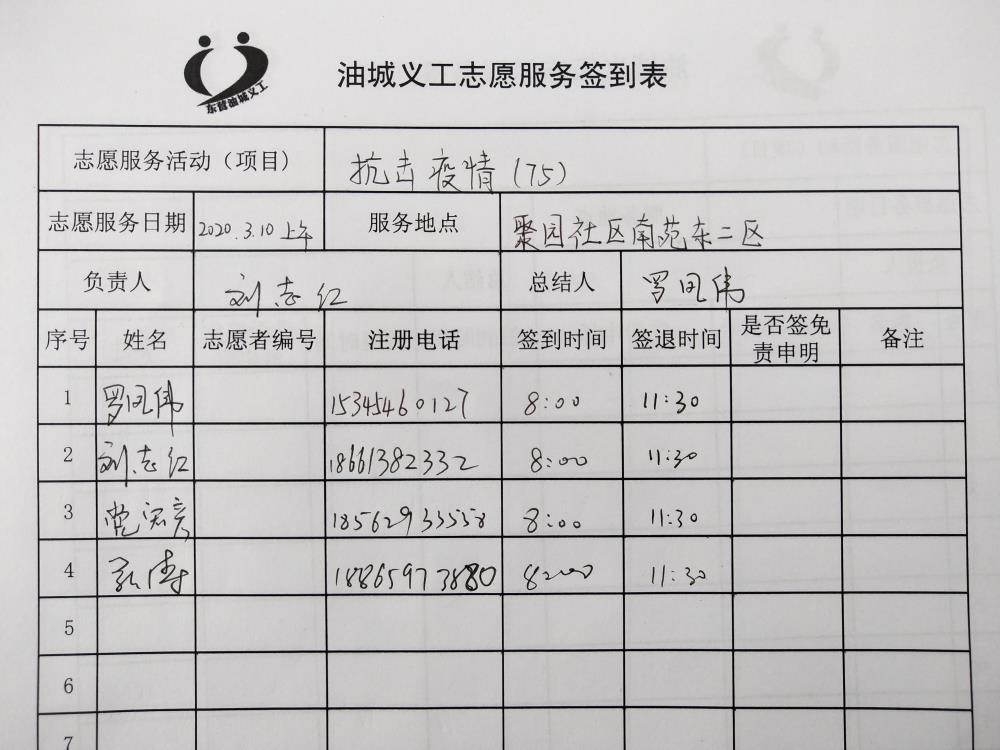 东营油城义工
油城义工志愿服务签到表
志愿服务活动（项目） 抗击疫情（75）
志愿服务日期 2020.3.10上午 服务地点 聚园社区南苑东二区
负责人 刘志红 总结人 罗凤伟
序号 姓名 志愿者编号 注册电话 签到时间 签退时间 是否签免责申明 备注
1 罗凤伟 15345460127 8:00 11:30
2 刘志红 18661382332 8:00 11:30
3 18562933558 8:00 11:30
4 18865973880 8:00 11:30
5
6
7